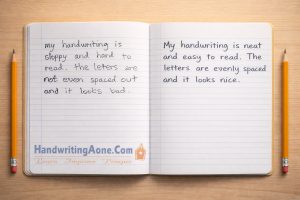 my handwriting is
sloppy and hard to
read. The leters are
not even spaced out
and it looks bad.
HandwritingAone.Com
Learn Improve Prosper
My handwriting is neat
and easy to read. The
letters are evenly spaced
and it looks nice.